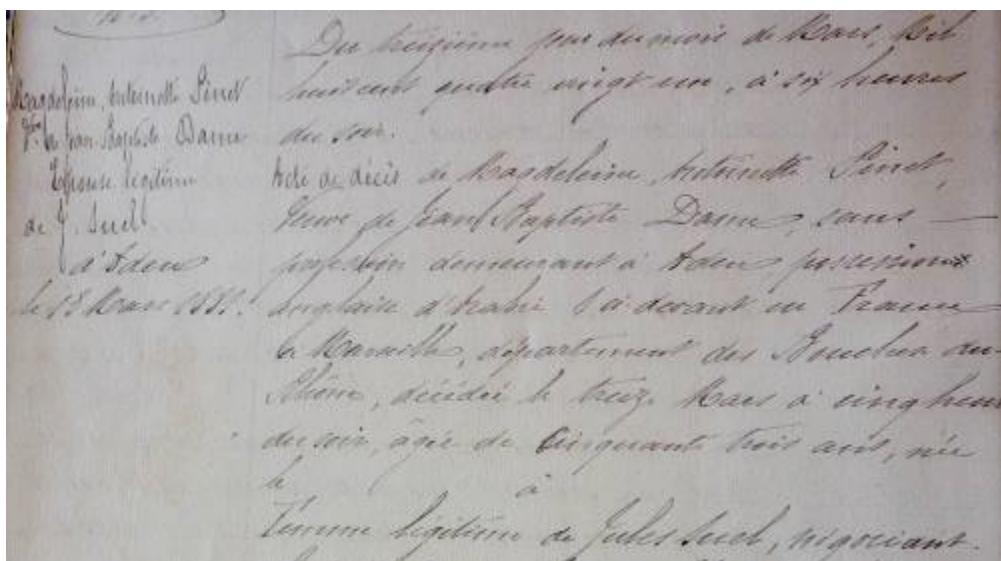 Magdeleine, Antoinette Pinet
Vve de Jean Baptiste Dame
Epouse légitime
de J. Suel
d'Aden
le 13 Mars 1881.
Du treizième jour du mois de Mars, mil
huit cent quatre vingt un, à six heures
du soir.
Acte de décès de Magdeleine, Antoinette Pinet,
Veuve de Jean Baptiste Dame, sans
profession demeurant à Aden, possessions
anglaise d'Arabie & ci devant en France
à Marseille, département des Bouches du
Rhône, décédée le treize Mars à cinq heures
du soir, âgée de Cinquante trois ans, née
le à
Femme légitime de Jules Suel, négociant.